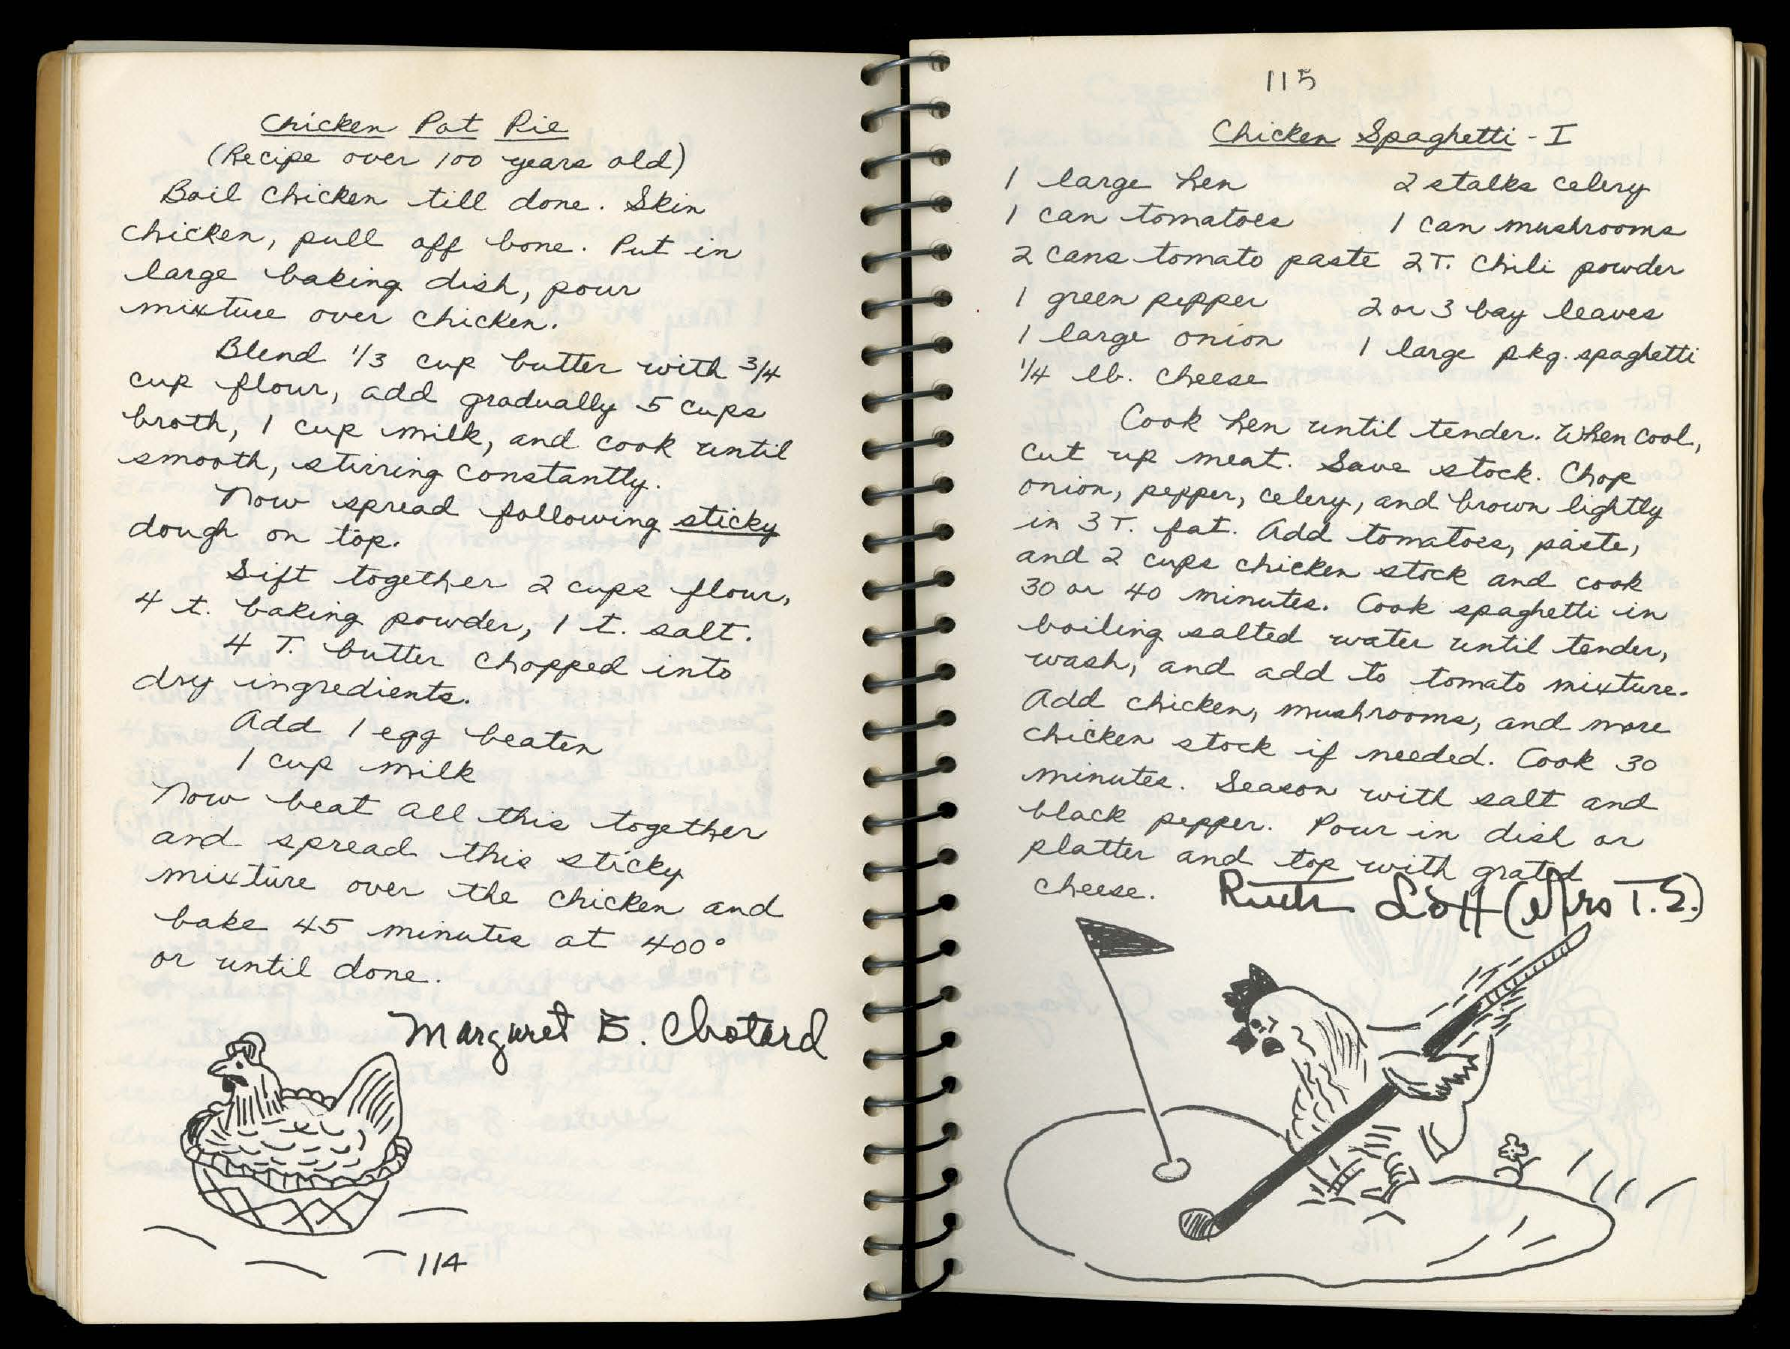 Chicken Pot Pie
(Recipe over 100 years old)
Boil chicken till done. Skin
chicken, pull off bone. Put in
large baking dish, pour
mixture over chicken.
Blend 1/3 cup butter with 3/4
cup flour, add gradually 5 cups
broth, 1 cup milk, and cook until
smooth, stirring constantly.
Now spread following sticky
dough on top.
Sift together 2 cups flour,
4 t. baking powder, 1 t. salt.
4 T. butter chopped into
dry ingredients.
Add 1 egg beaten
1 cup milk
Now beat all this together
and spread this sticky
mixture over the chicken and
bake 45 minutes at 400°
or until done.
Margaret B. Chotard
114
115
Chicken Spaghetti - I
1 large hen 2 stalks celery
1 can tomatoes 1 can mushrooms
2 cans tomato paste 2 T. chili powder
1 green pepper 2 or 3 bay leaves
1 large onion 1 large pkg. spaghetti
1/4 lb. cheese
Cook hen until tender. When cool,
cut up meat. Save stock. Chop
onion, pepper, celery, and brown lightly
in 3 T. fat. Add tomatoes, paste,
and 2 cups chicken stock and cook
30 or 40 minutes. Cook spaghetti in
boiling salted water until tender,
wash, and add to tomato mixture.
Add chicken, mushrooms, and more
chicken stock if needed. Cook 30
minutes. Season with salt and
black pepper. Pour in dish or
platter and top with grated
cheese.
Ruth Lott (Mrs T.S.)